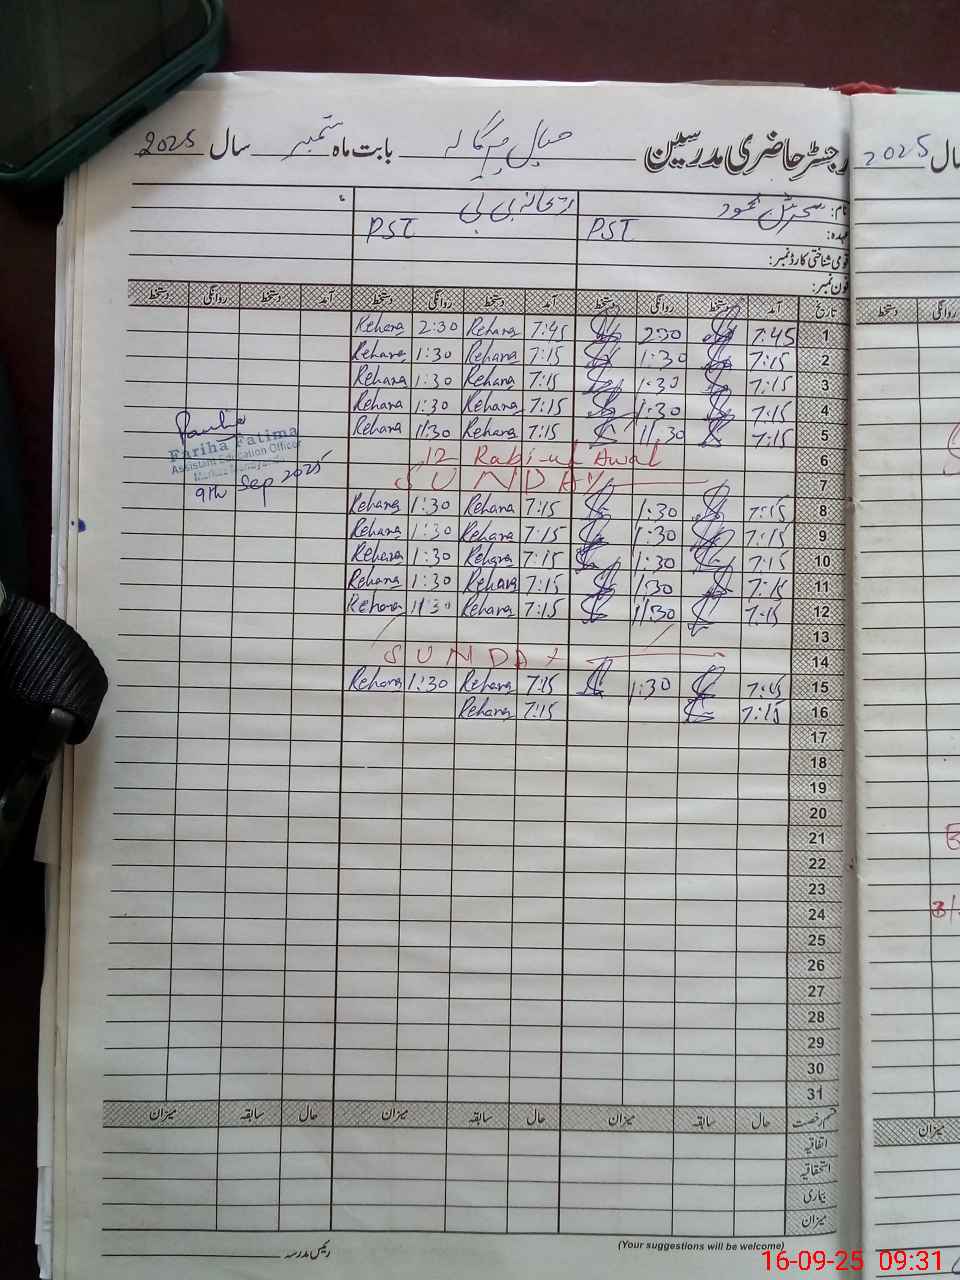 رجسٹر حاضری مدرسین بابت ماہ ستمبر سال 2025
نام: محمود ریحانہ بی بی
عہدہ: PST PST
قومی شناختی کارڈ نمبر:
فون نمبر:
تاریخ آمد دستخط روانگی دستخط آمد دستخط روانگی دستخط آمد دستخط روانگی دستخط
1 7:45 2:30 7:45 Rehana 2:30 Rehana
2 7:15 1:30 7:15 Rehana 1:30 Rehana
3 7:15 1:30 7:15 Rehana 1:30 Rehana
4 7:15 1:30 7:15 Rehana 1:30 Rehana
5 7:15 11:30 7:15 Rehana 11:30 Rehana
6 12 Rabi-ul Awal
7 SUNDAY
8 7:15 1:30 7:15 Rehana 1:30 Rehana
9 7:15 1:30 7:15 Rehana 1:30 Rehana
10 7:15 1:30 7:15 Rehana 1:30 Rehana
11 7:15 1:30 7:15 Rehana 1:30 Rehana
12 7:15 11:30 7:15 Rehana 11:30 Rehana
13
14 SUNDAY
15 7:15 1:30 7:15 Rehana 1:30 Rehana
16 7:15 7:15 Rehana
17
18
19
20
21
22
23
24
25
26
27
28
29
30
31
Fariha Fatima
Assistant Education Officer
Markaz
9th Sep 2025
قسم رخصت حال سابقہ میزان حال سابقہ میزان حال سابقہ میزان
اتفاقیہ
استحقاقیہ
بیماری
میزان
رئیس مدرسہ
(Your suggestions will be welcome)
سال 2025
روانگی دستخط
میزان
16-09-25 09:31